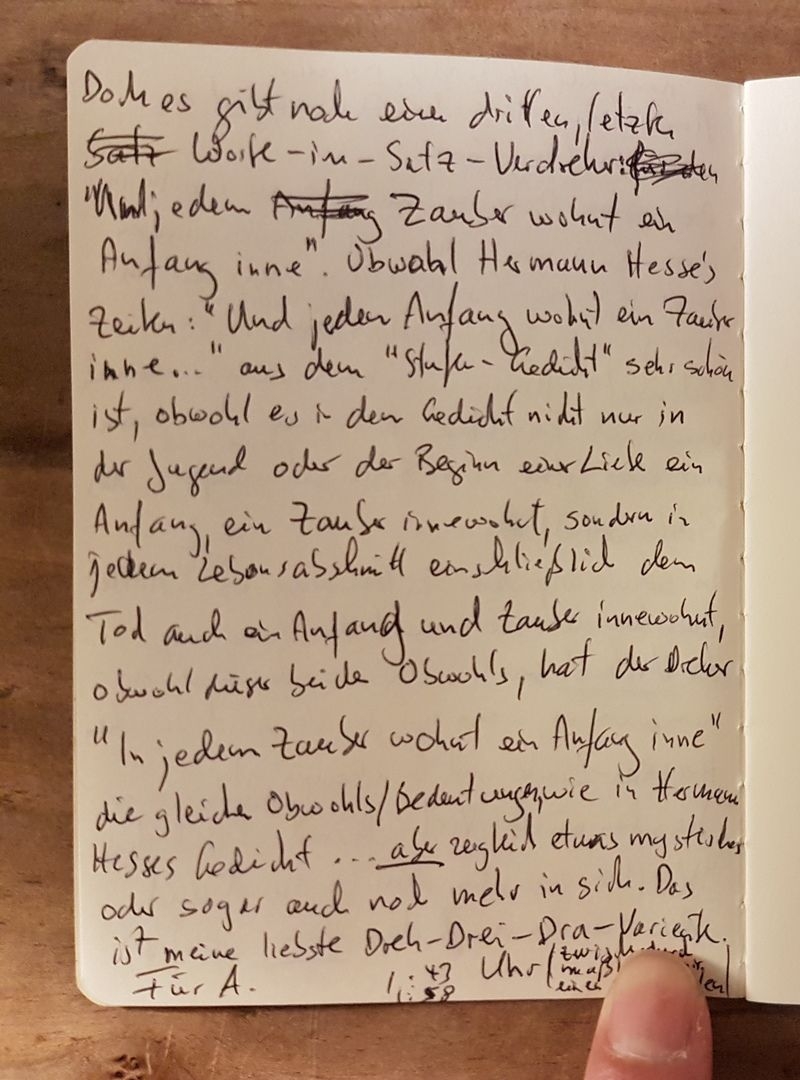 Doch es gibt noch einen dritten, letzten
Satz Worte-in-Satz-Verdreher:
"Und jedem Anfang Zauber wohnt ein
Anfang inne". Obwohl Hermann Hesse's
Zeilen: "Und jeden Anfang wohnt ein Zauber
inne..." aus dem "Stufen-Gedicht" sehr schön
ist, obwohl es in dem Gedicht nicht nur in
der Jugend oder der Beginn einer Liebe ein
Anfang, ein Zauber innewohnt, sondern in
jedem Lebensabschnitt einschließlich dem
Tod auch ein Anfang und Zauber innewohnt,
obwohl dieser beiden Obwohls, hat der Dreher
"In jedem Zauber wohnt ein Anfang inne"
die gleichen Obwohls/Bedeutungen, wie in Hermann
Hesses Gedicht ... aber zugleich etwas mystisches
oder sogar auch noch mehr in sich. Das
ist meine liebste Dreh-Drei-Dra-Variante.
Für A. 11:43 Uhr
11:58